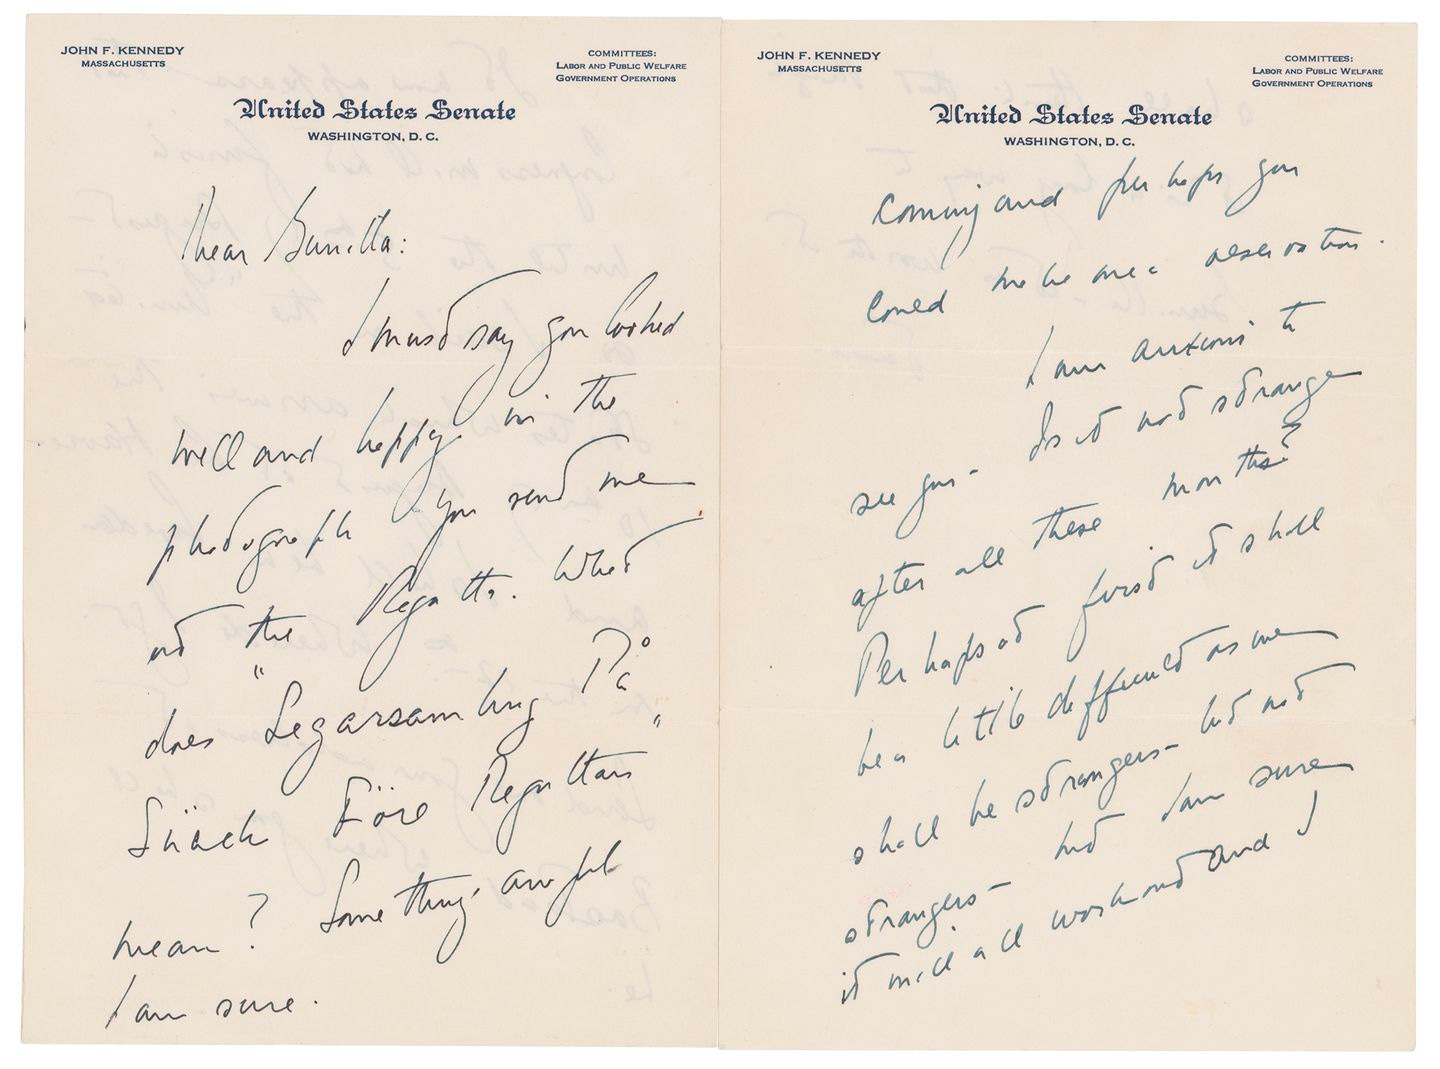 JOHN F. KENNEDY
MASSACHUSETTS
COMMITTEES:
LABOR AND PUBLIC WELFARE
GOVERNMENT OPERATIONS
United States Senate
WASHINGTON, D. C.
Dear Gunilla:
I must say you looked
well and happy in the
photograph you send me
at the Regatta. What
does "Segarsamling På
Süäck Före Regattan"
mean? Something awful
I am sure.
JOHN F. KENNEDY
MASSACHUSETTS
COMMITTEES:
LABOR AND PUBLIC WELFARE
GOVERNMENT OPERATIONS
United States Senate
WASHINGTON, D. C.
coming and perhaps you
could make me a reservation.
I am anxious to
see you - Is it not strange
after all these months?
Perhaps at first it shall
be a little difficult as we
shall be strangers - but not
strangers - but I am sure
it will all work out and I